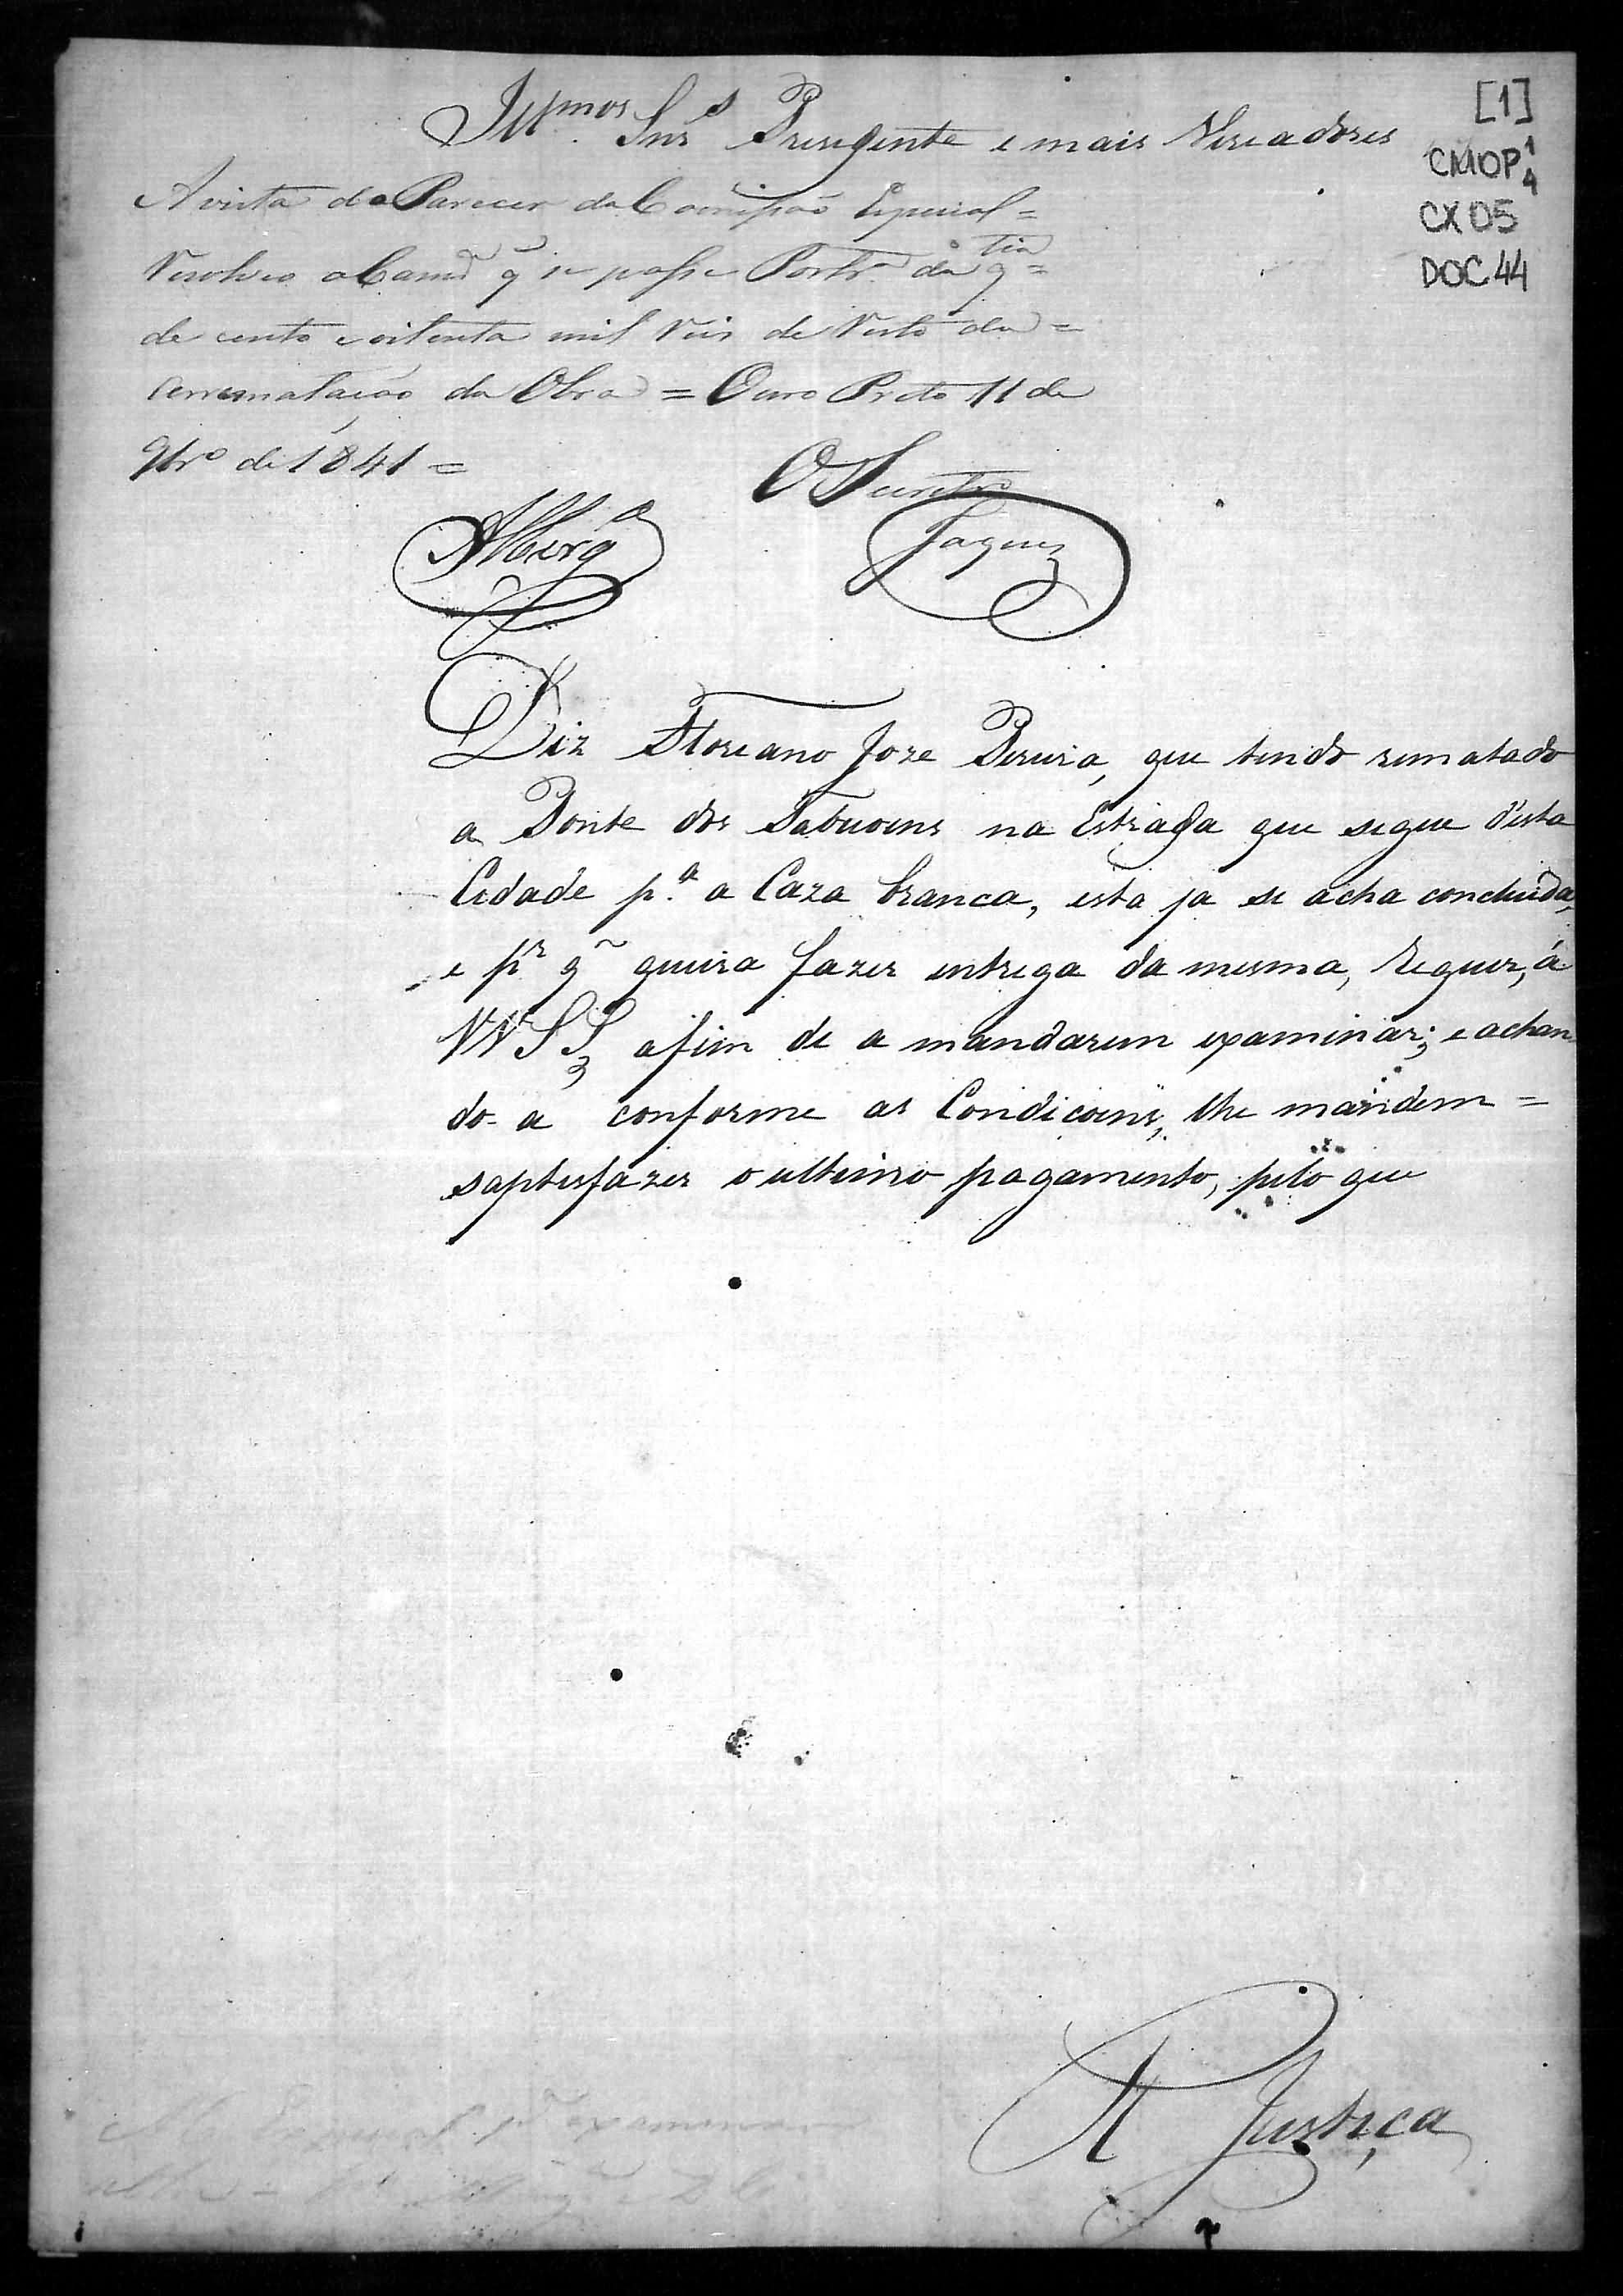 Illmos Snrs Presidente e mais Vereadores
[1]
CMOP 1/4
CX 05
DOC 44
A vista do Parecer da Comissão Especial =
Resolveo a Camrª q̃ se passe Portrª da qtia =
de cento e oitenta mil reis de resto da =
arrematação da Obra = Ouro Preto 11 de
9bro de 1841 =
O Secretrº
Albergª
Diz Floreano Joze Pereira, que tendo rematado
a Ponte dos Tabooens na Estrada que segue d'esta
Cidade p.ª a Caza branca, esta ja se acha concluida,
e pr q̃ queira fazer entrega da mesma, Requer, á
VVSS, afim de a mandarem examinar; e achan
do-a conforme as Condicoens, lhe mandem =
saptesfazer o ultimo pagamento, pelo que
R Justiça